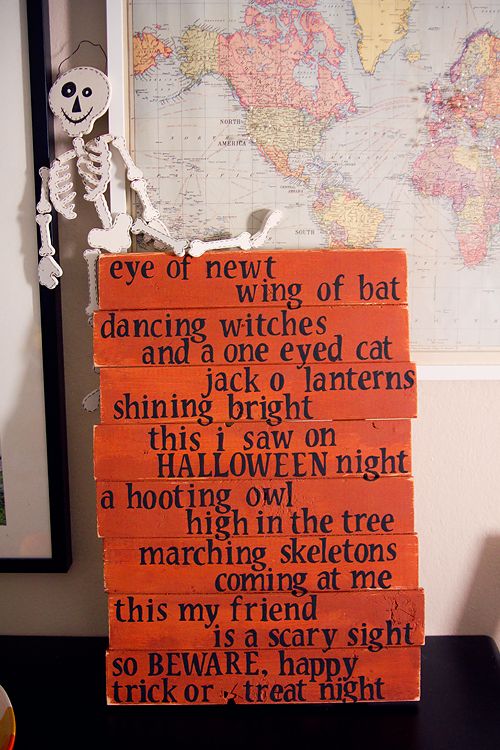 NORTH
AMERICA
eye of newt
wing of bat
dancing witches
and a one eyed cat
jack o lanterns
shining bright
this i saw on
HALLOWEEN night
a hooting owl
high in the tree
marching skeletons
coming at me
this my friend
is a scary sight
so BEWARE, happy
trick or treat night